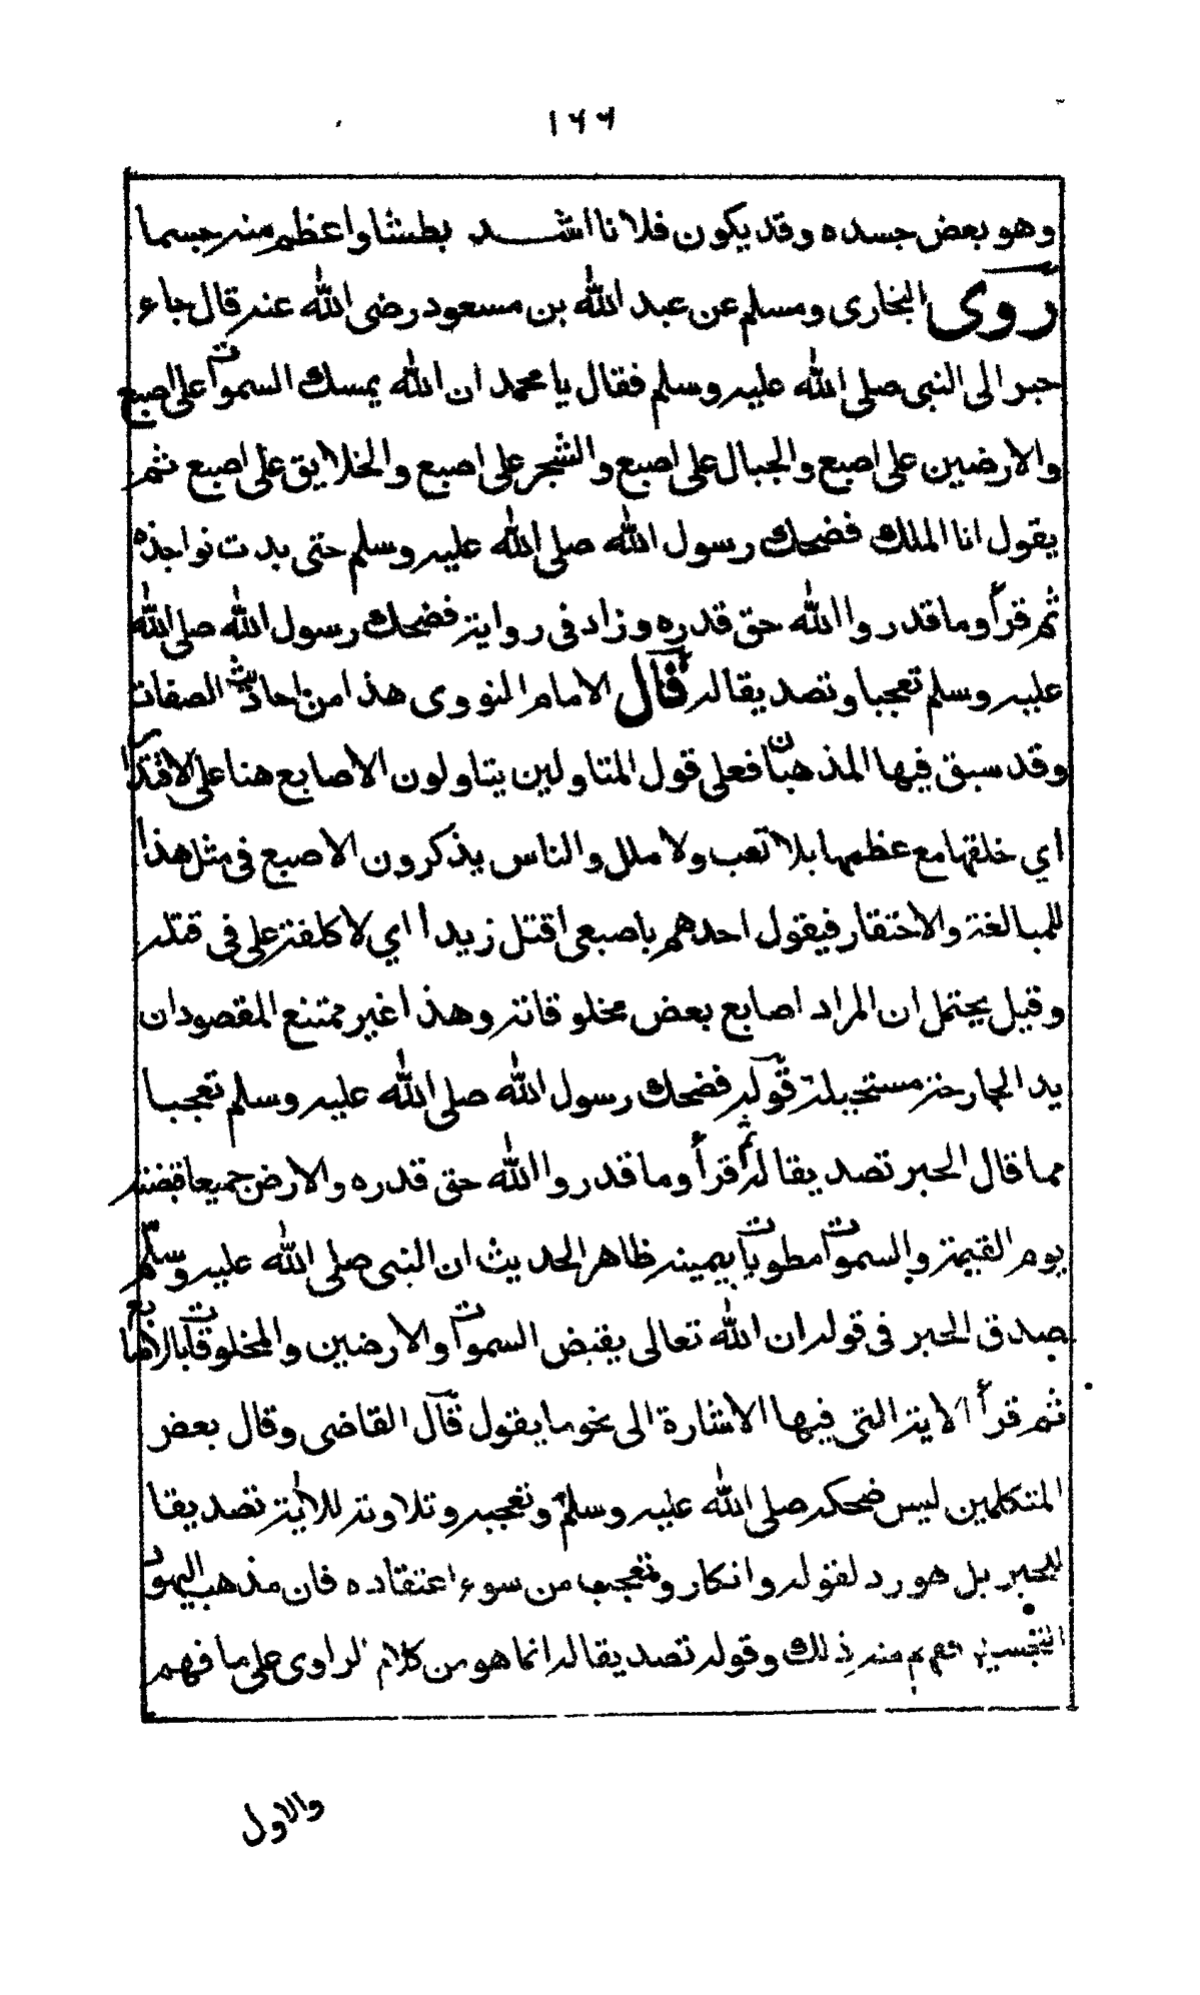 ١٢٢
وهو بعض جسده وقد يكون فلانا اشد بطشا واعظم منه جسما
روى البخارى ومسلم عن عبد الله بن مسعود رضى الله عنه قال جاء
حبر الى النبى صلى الله عليه وسلم فقال يا محمد ان الله يمسك السموات على اصبع
والارضين على اصبع والجبال على اصبع والشجر على اصبع والخلايق على اصبع ثم
يقول انا الملك فضحك رسول الله صلى الله عليه وسلم حتى بدت نواجذه
ثم قرأ وما قدروا الله حق قدره وزاد فى رواية فضحك رسول الله صلى الله
عليه وسلم تعجبا وتصديقا له قال الامام النووى هذا من احاديث الصفات
وقد سبق فيها المذهبان فعلى قول المتاولين يتاولون الاصابع هنا على الاقتدار
اي خلقها مع عظمها بلا تعب ولا ملل والناس يذكرون الاصبع فى مثل هذا
للمبالغة والاحتقار فيقول احدهم باصبعى اقتل زيدا اي لا كلفة على فى قتله
وقيل يحتمل ان المراد اصابع بعض مخلوقاته وهذا غير ممتنع المقصود ان
يد الجارحة مستحيلة قوله فضحك رسول الله صلى الله عليه وسلم تعجبا
مما قال الحبر تصديقا له ثم قرأ وما قدروا الله حق قدره والارض جميعا قبضته
يوم القيمة والسموات مطويات بيمينه ظاهر الحديث ان النبى صلى الله عليه وسلم
صدق الحبر فى قوله ان الله تعالى يقبض السموات والارضين والمخلوقات بالاصابع
ثم قرأ الاية التى فيها الاشارة الى نحو ما يقول قال القاضى وقال بعض
المتكلمين ليس ضحكه صلى الله عليه وسلم وتعجبه وتلاوته للاية تصديقا
للحبر بل هو رد لقوله وانكار وتعجب من سوء اعتقاده فان مذهب اليهود
التجسيم منه ذلك وقوله تصديقا له انما هو من كلام الراوى على ما فهم
والاول